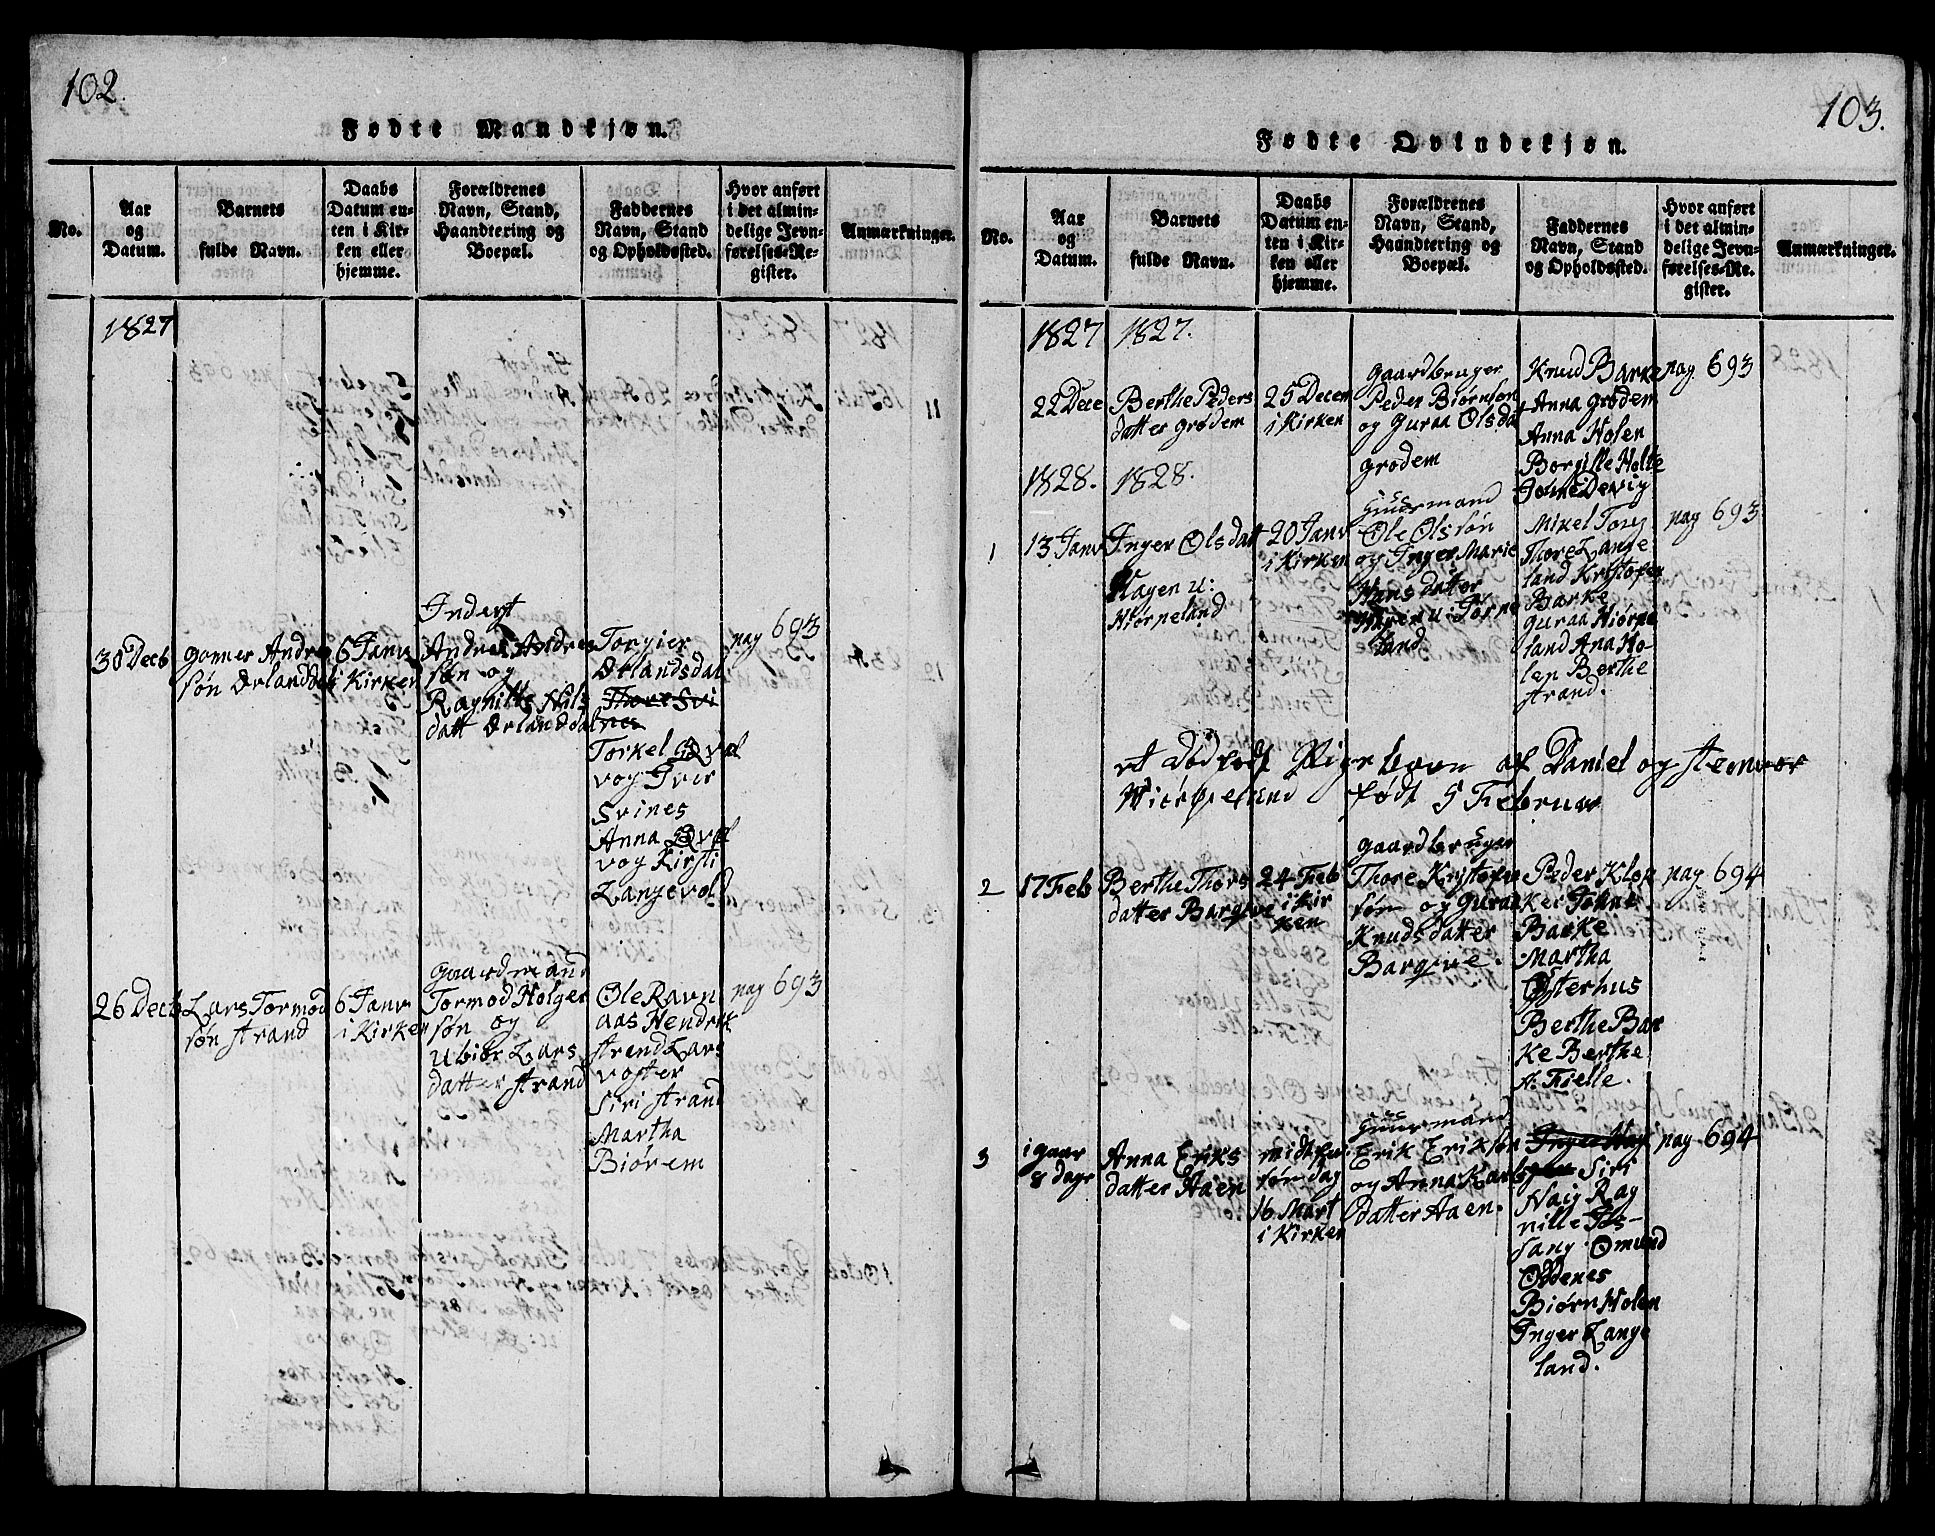 102.
Fødte Mandkjøn.
No.
Aar
og
Datum.
Barnets
fulde Navn.
Daabs
Datum en-
ten i Kir-
ken eller
hjemme.
Forældrenes
Navn, Stand,
Haandtering og
Boepæl.
Faddernes
Navn, Stand
og Opholdssted.
Hvor anført
i det almin-
delige Jevn-
førelses-Re-
gister.
Anmærkninger.
1827
30 Decb
Gonner Andre
søn Ørlanddal
6 Janv
i Kirken
Inderst
Andreas Andrea
søn og
Ragnille Nils
datt Ørlanddal
Torgier
Ørlandsdal
Thore Svi
nes
Torkel Qvel
vog Iver
Svines
Anna Qvel
vog Kirsti
Langevold
pag 693
26 Decb
Lars Tormod
søn Strand
6 Janv
i Kirken
Gaardmand
Tormod Holger
søn og
Ubiør Lars
datter Strand
Ole Ravn
aas Hendrik
Strand Lars
Vogter
Siri Strand
Martha
Biørem
pag 693
103.
Fødte Qvindekjøn.
No.
Aar
og
Datum.
Barnets
fulde Navn.
Daabs
Datum en-
ten i Kir-
ken eller
hjemme.
Forældrenes
Navn, Stand,
Haandtering og
Boepæl.
Faddernes
Navn, Stand
og Opholdssted.
Hvor anført
i det almin-
delige Jevn-
førelses-Re-
gister.
Anmærkninger.
1827 1827.
22 Dece
Berthe Peders
datter Grødem
25 Decem
i Kirken
Gaardbruger
Peder Biørnsøn
og Guraa Olsdat
Grødem
Knud Barke
Anna Grødem
Anna Holen
Borgille Holte
pag 693
1828. 1828.
1
13 Janv
Inger Olsdatt
Hagen u:
Hiørpeland
20 Janv
i Kirken
Huusmand
Ole Olssøn
og Inger Marie
Hans datter
Hagen u:
land
Mikel Torg
Thore Lange
land Kristofer
Barke
Guraa Hiørpe
land Ana Ho-
len Berthe
Strand.
pag 693
et dødfødt Pigebarn af Daniel og Stemvor
Hiørpeland født 5 Februar
2
17 Feb
Berthe Thors
datter Bargeve
24 Feb
i Kir
ken
Gaardbruger
Thore Kristofer
søn og Guraa
Knuds datter
Bargeve.
Peder Klop
ker
Barke
Martha
Østerhus
Berthe Bar
ke Berthe
N: Fielle.
pag 694
3
i gaar
8 dage
Anna Eriks
datter Aaen
midtfa
søn dag
16 Mart
i Kirken
Huusmand
Erik Eriksøn
og Anna Karls
datter Aaen.
Inger Hag
gen Siri
Haig Rag
nille Tøs-
sang Omund
Oddenes
Biørn Holen
Inger Lange
land.
pag 694